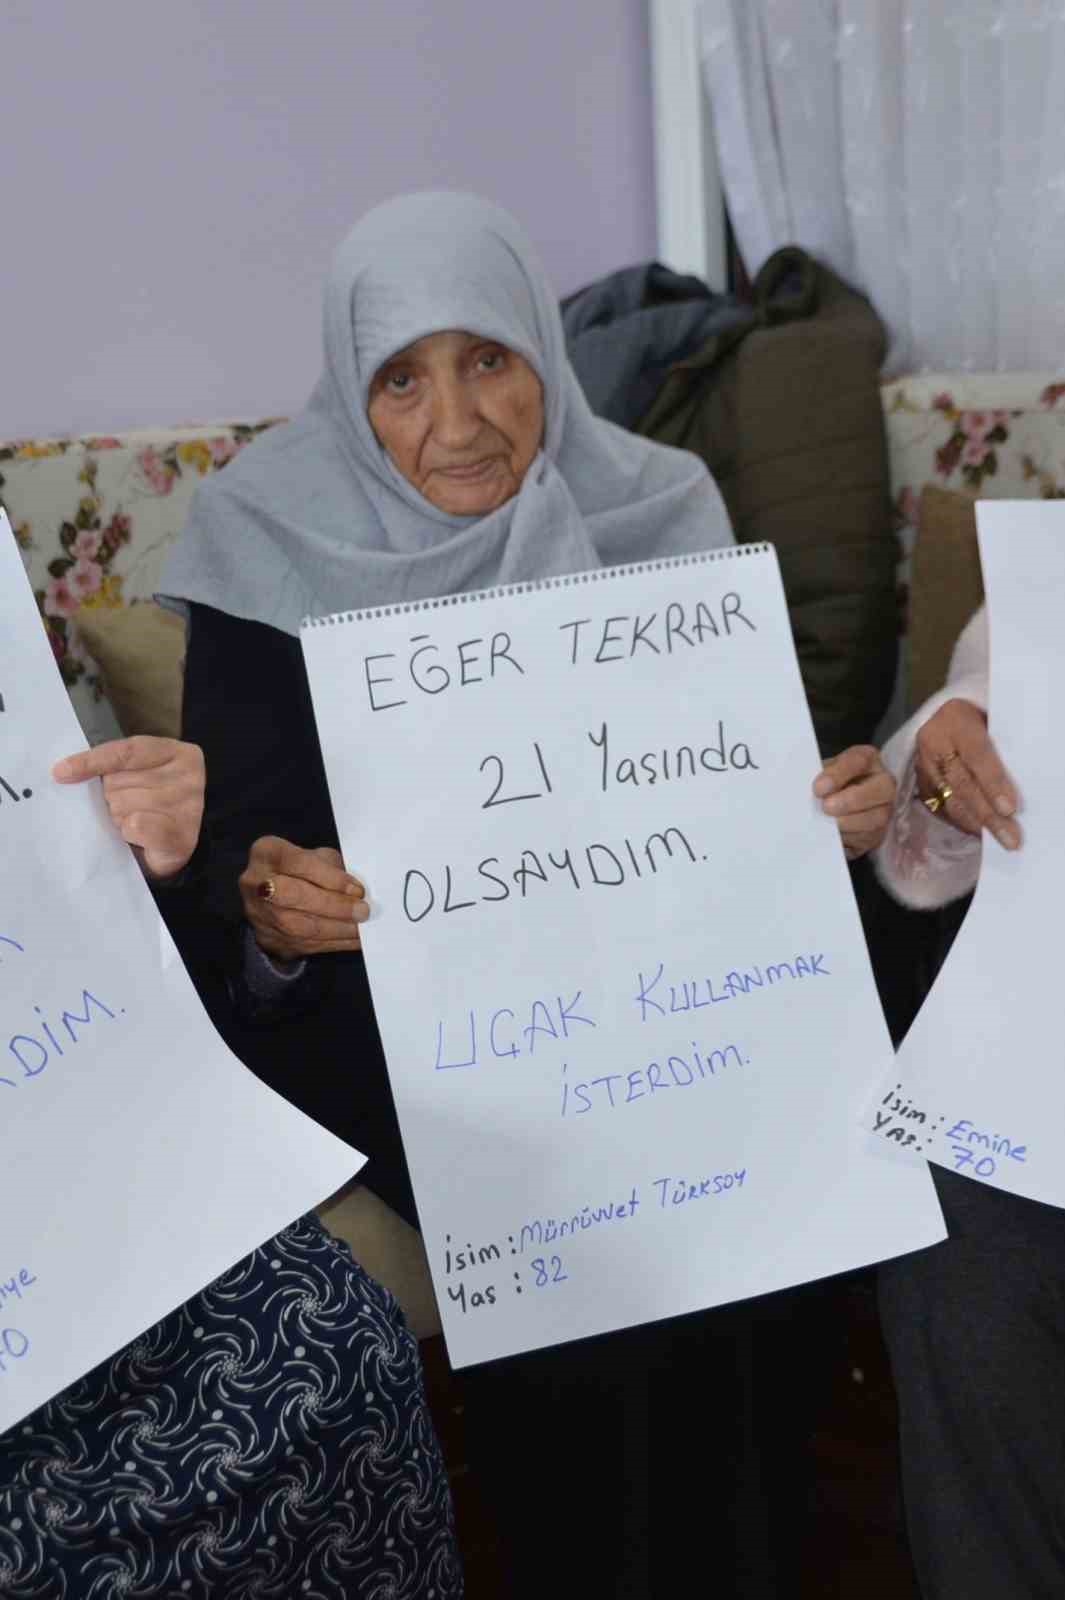 EĞER TEKRAR
21 Yaşında
OLSAYDIM.
UÇAK KULLANMAK
İSTERDİM.
İsim : Mürrüvvet TÜRKSOY
Yaş : 82
DİM.
İsim : Emine
Yaş : 70